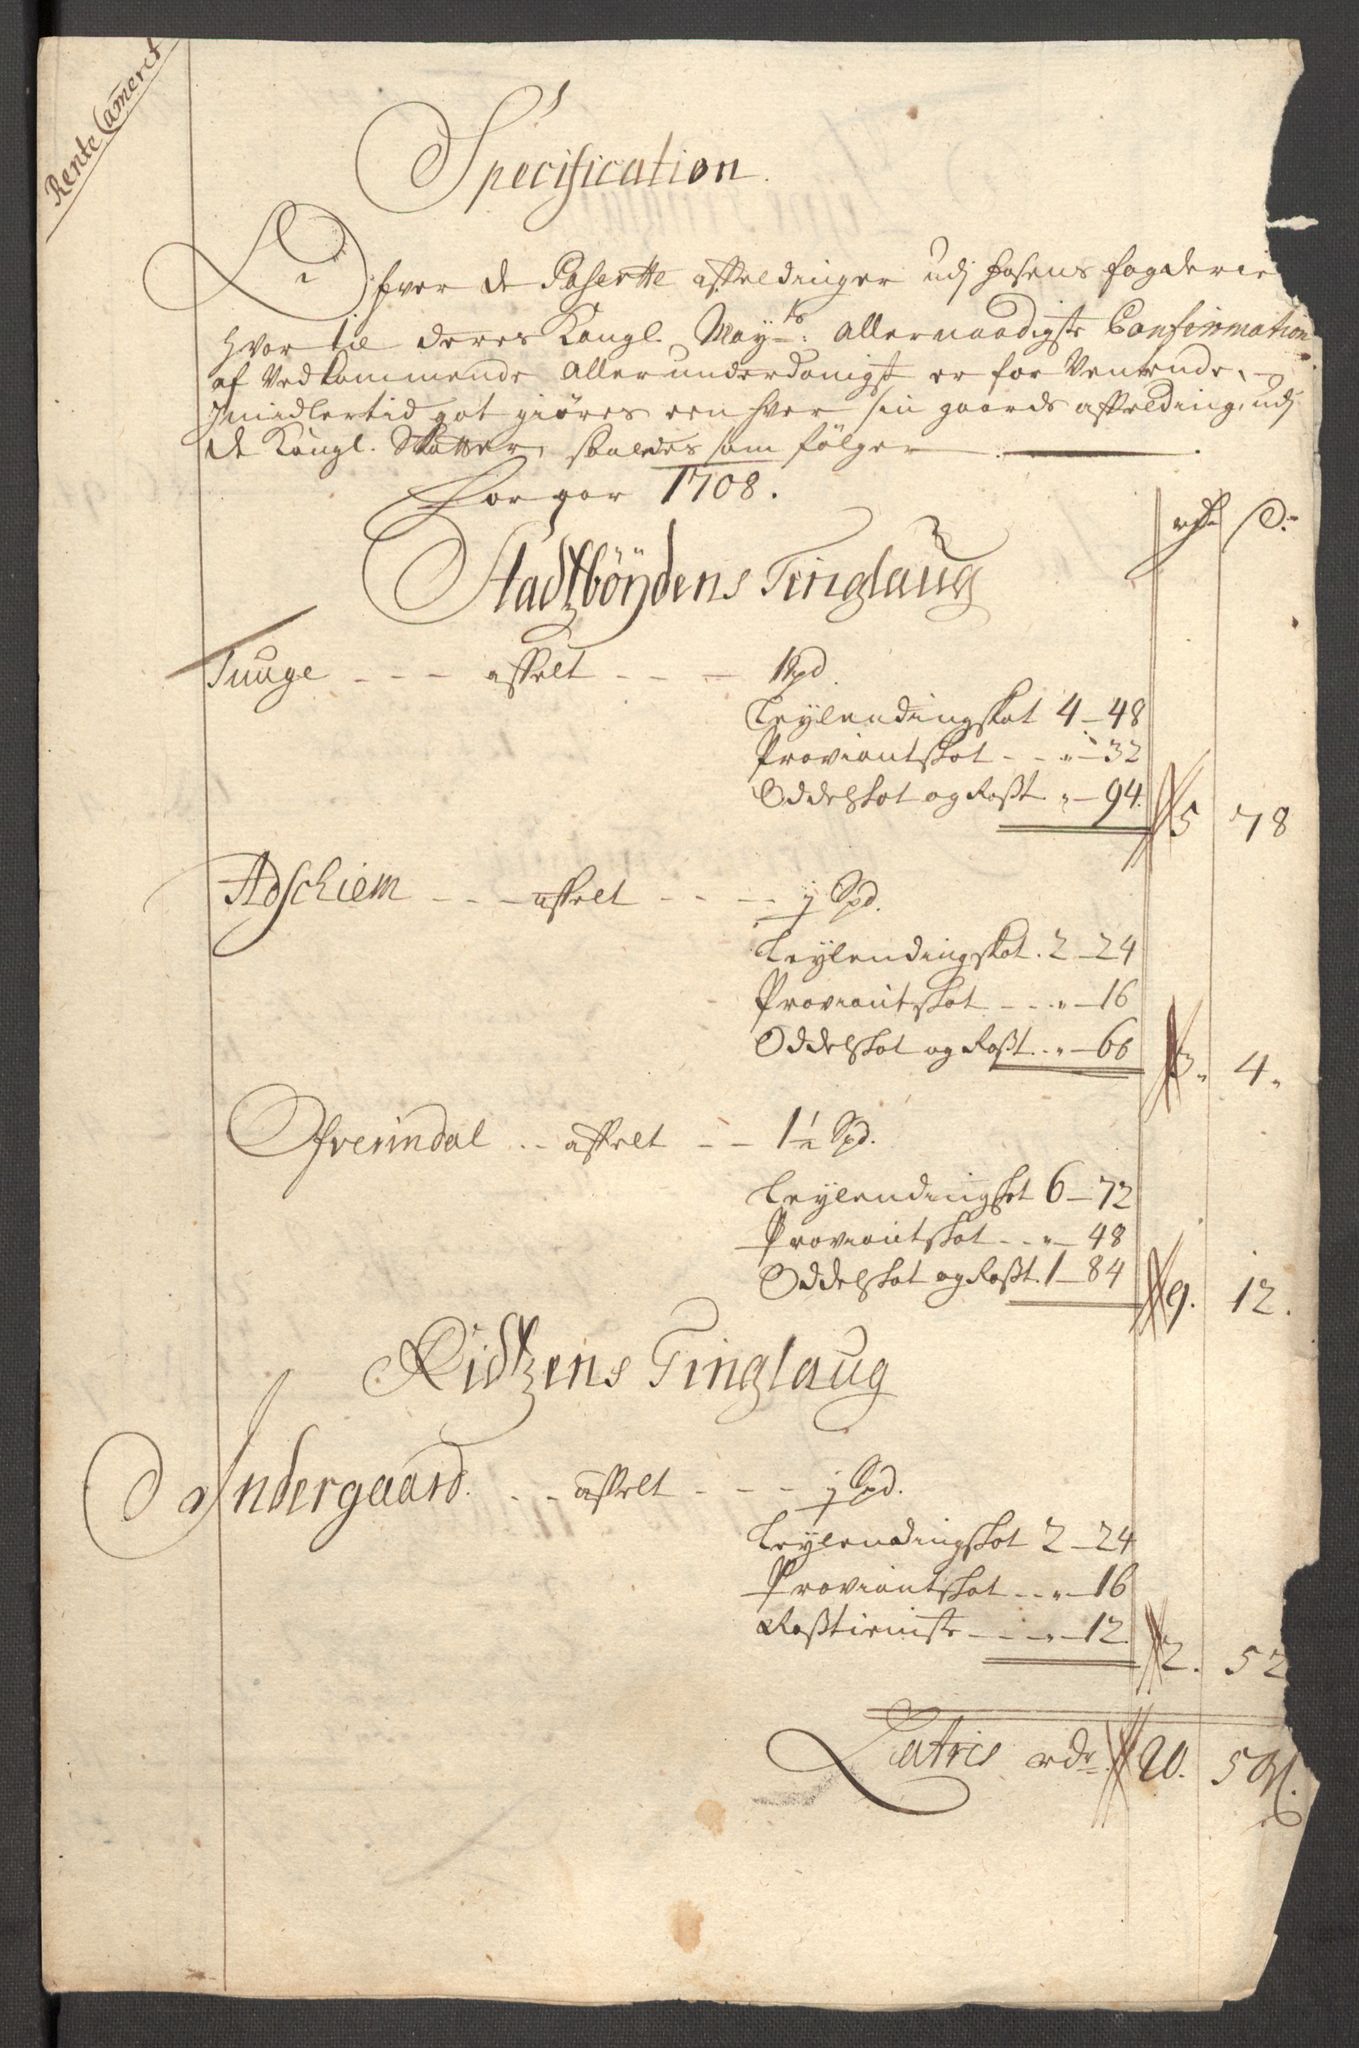 Rente Cameret
Specification
Ofver de Paserette affeldinger udj Fosens fogderie
hvor til deres Kongl. Mayts: Allernaadigste Confirmation
af Vedkommende Allerunderdanigst er for Ventende,
Imidlertid got giöres een hver sin gaards affelding, udj
de Kongl. Skatter, saaledes som fölger
For aar 1708.
rdr ß:
Stadtzböydens Tinglaug
Tuuge - - - affelt - - - 1 Spd.
Leylendingskat 4 - 48
Proviantskat - - „ - 32
Oddelskat og Roßt. „ - 94. 5 78
Adschiem - - - affelt - - - - j Spd.
Leylendingskat. 2 - 24
Proviantskat - - - „ - 16
Oddelskat og Roßt. .. „ - 66 3. 4.
Ofverindal .. affelt - - 1½ Spd.
Leylendingskat 6 - 72
Proviantskat - .. „ - 48
Oddelskat og Roßt. 1 - 84 9. 12.
Ridtzens Tinglaug
Indergaard. - - affelt - - - j Spd.
Leylendingskat 2 - 24
Proviantskat - .. „ - 16
Roßtieniste - - - „ - 12. 2. 52
Latris rdr 20. 50